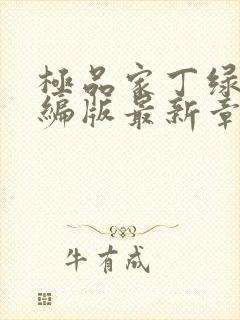 極品家丁绿
编版最新章
牛有成